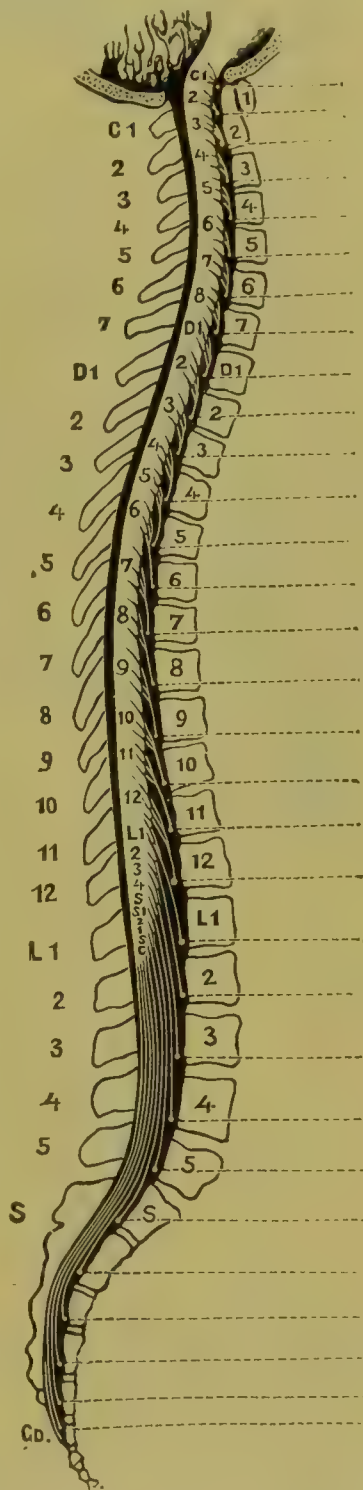 C1
2
3
4
5
6
7
D1
2
3
4
5
6
7
8
9
10
11
12
L1
2
3
4
5
S
Co.
C1
2
3
4
5
6
7
8
D1
2
3
4
5
6
7
8
9
10
11
12
L1
2
3
4
S
S1
2
1
S
C
1
2
3
4
5
6
7
D1
2
3
4
5
6
7
8
9
10
11
12
L1
2
3
4
5
S